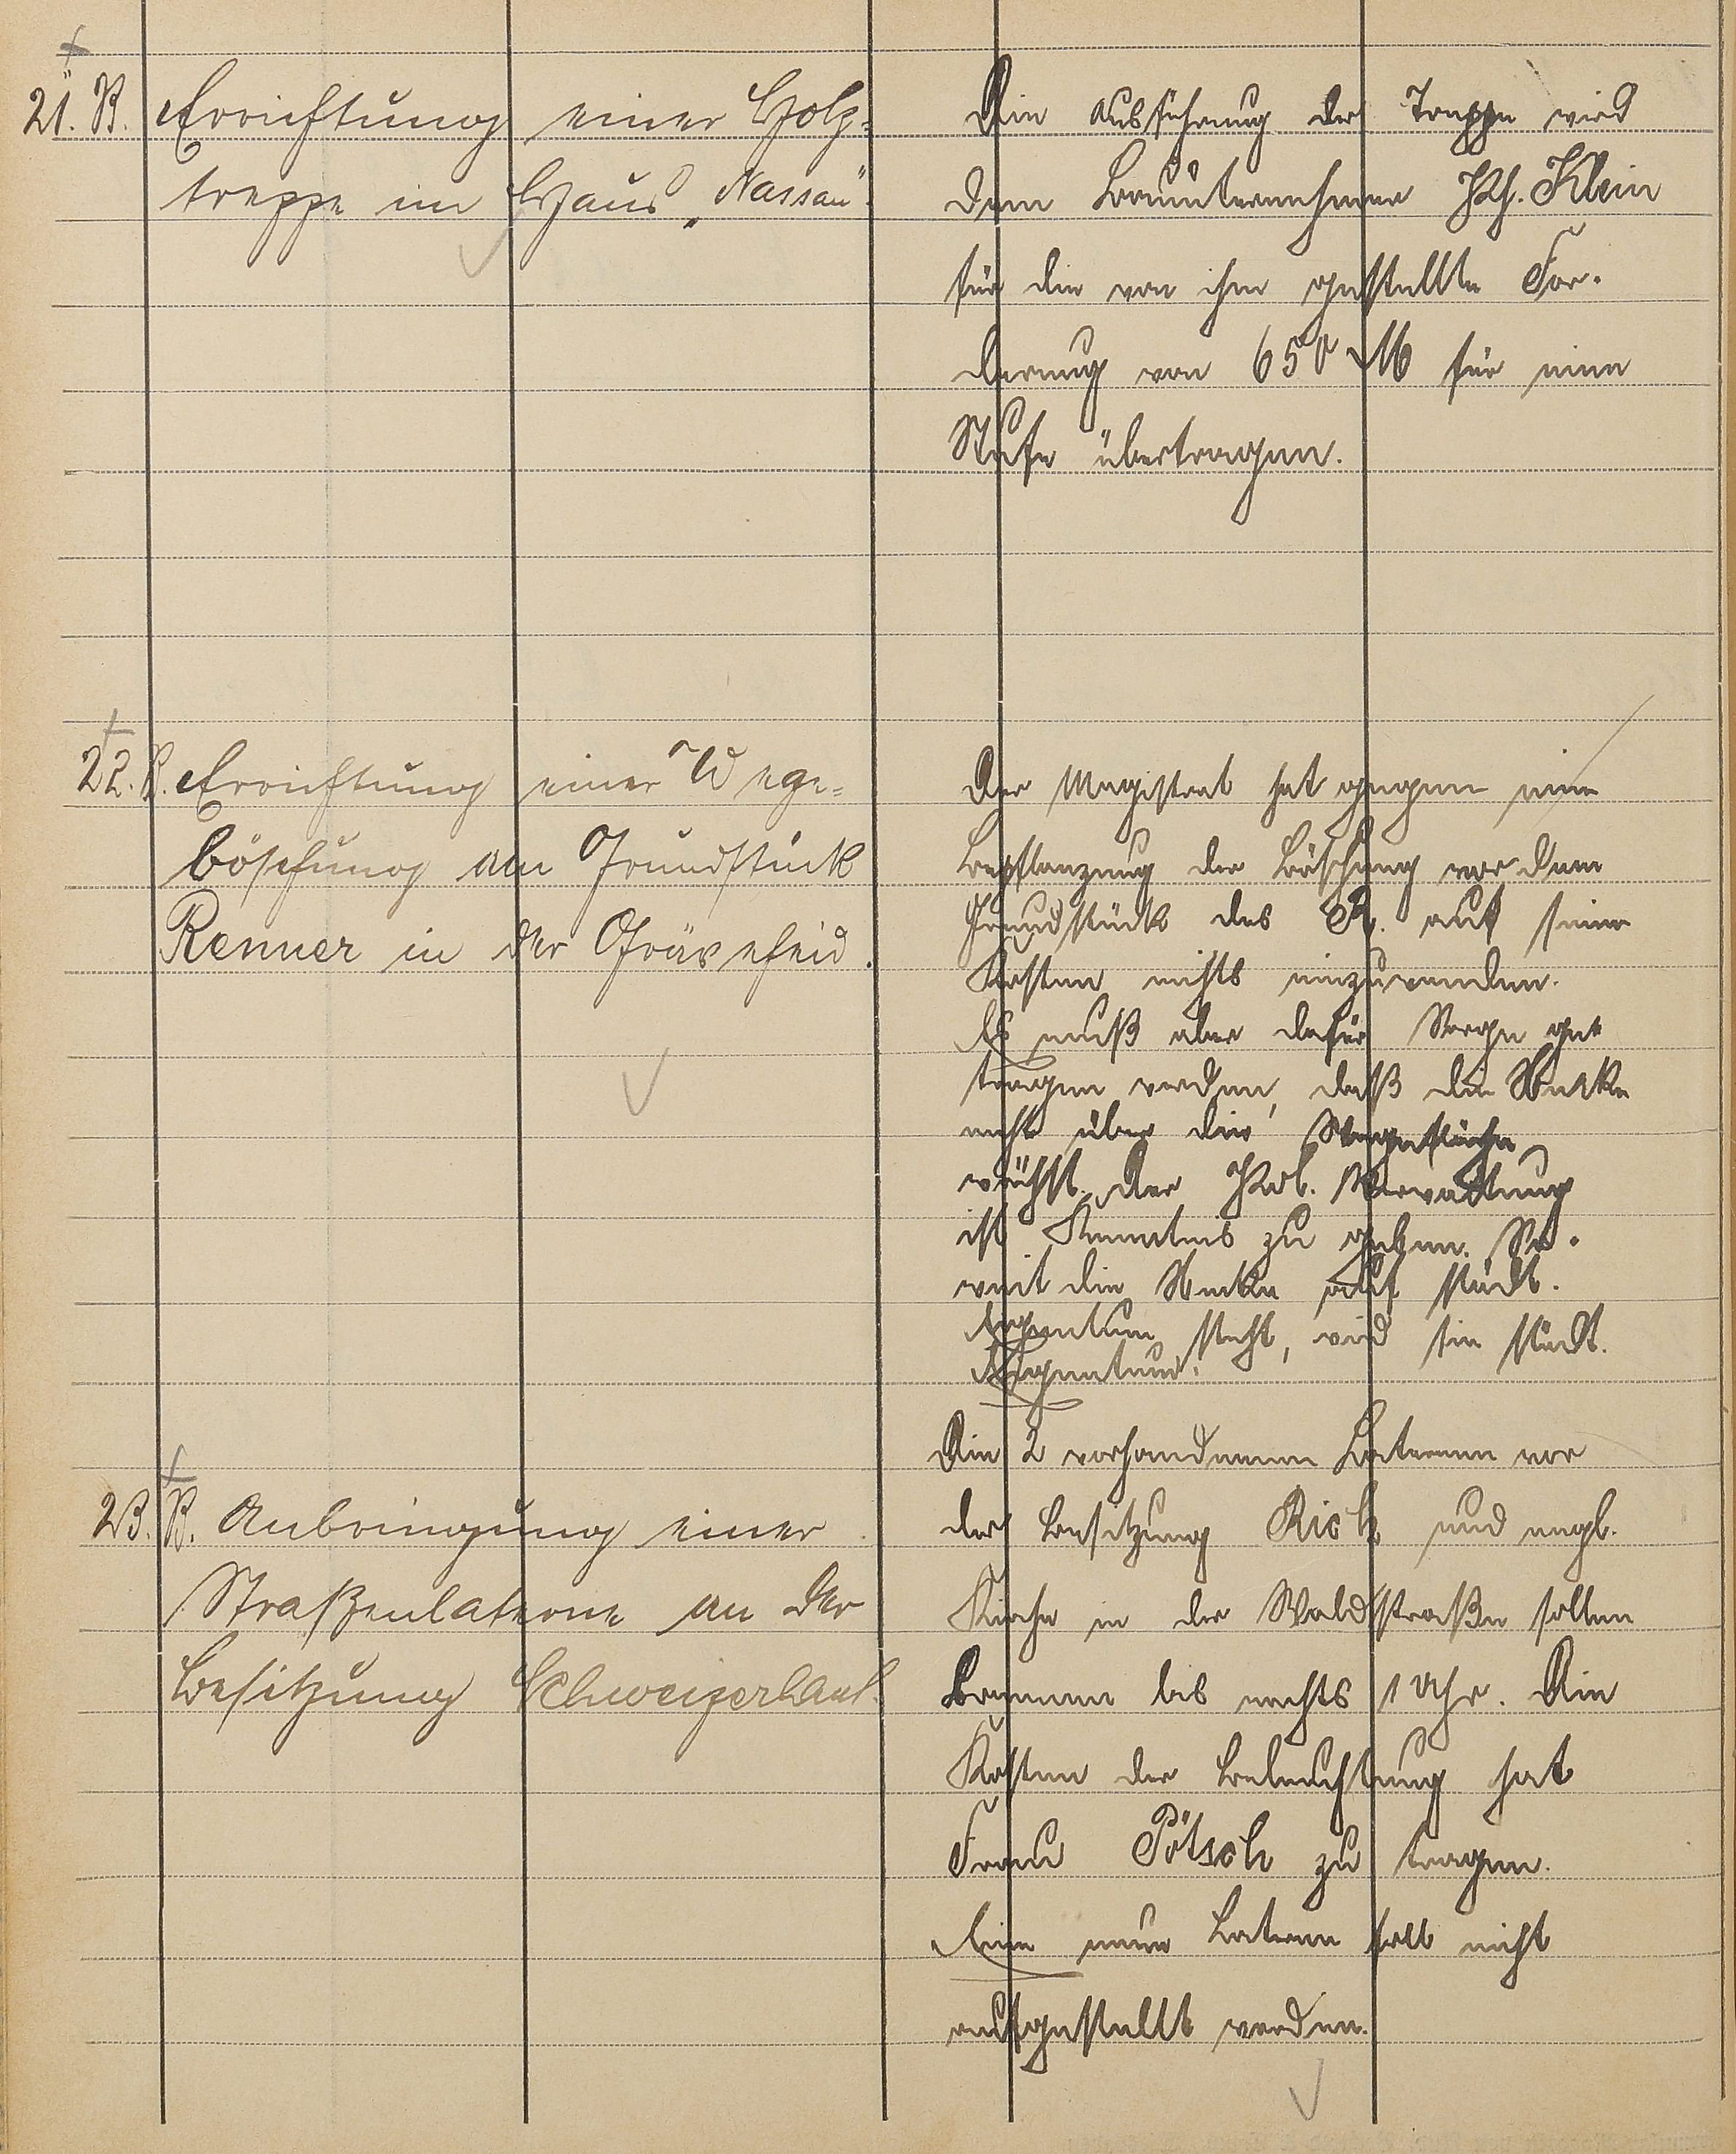 21. B. Errichtung einer Holz-
treppe im Haus „Nassau“.
Die Ausführung der Treppe wird
dem Bauunternehmer Kh. Klein
für die von ihm gestellte For-
derung von 650 M für eine
Stufe übertragen.
22. B. Errichtung einer Wege-
böschung am Grundstück
Renner in der Gräveneid.
Der Magistrat hat gegen eine
Bepflanzung der Böschung vor dem
Grundstück des R. auf seine
Kosten nichts einzuwenden.
Es muß aber dafür Sorge ge-
tragen werden, daß die Hecke
nicht über die Wegefläche
wächst. Der Kdl. Verwaltung
ist Kenntnis zu geben. So-
weit die Hecke auf städt.
Eigentum steht, wird sie städt.
Eigentum.
23. B. Anbringung einer
Straßenlaterne an der
Besitzung Schweizerland.
Die 2 vorhandenen Laternen vor
der Besitzung Rick und engl.
Kirche in der Waldstraße sollen
brennen bis nachts 1 Uhr. Die
Kosten der Beleuchtung hat
Frau Pötsch zu tragen.
Eine neue Laterne soll nicht
aufgestellt werden.